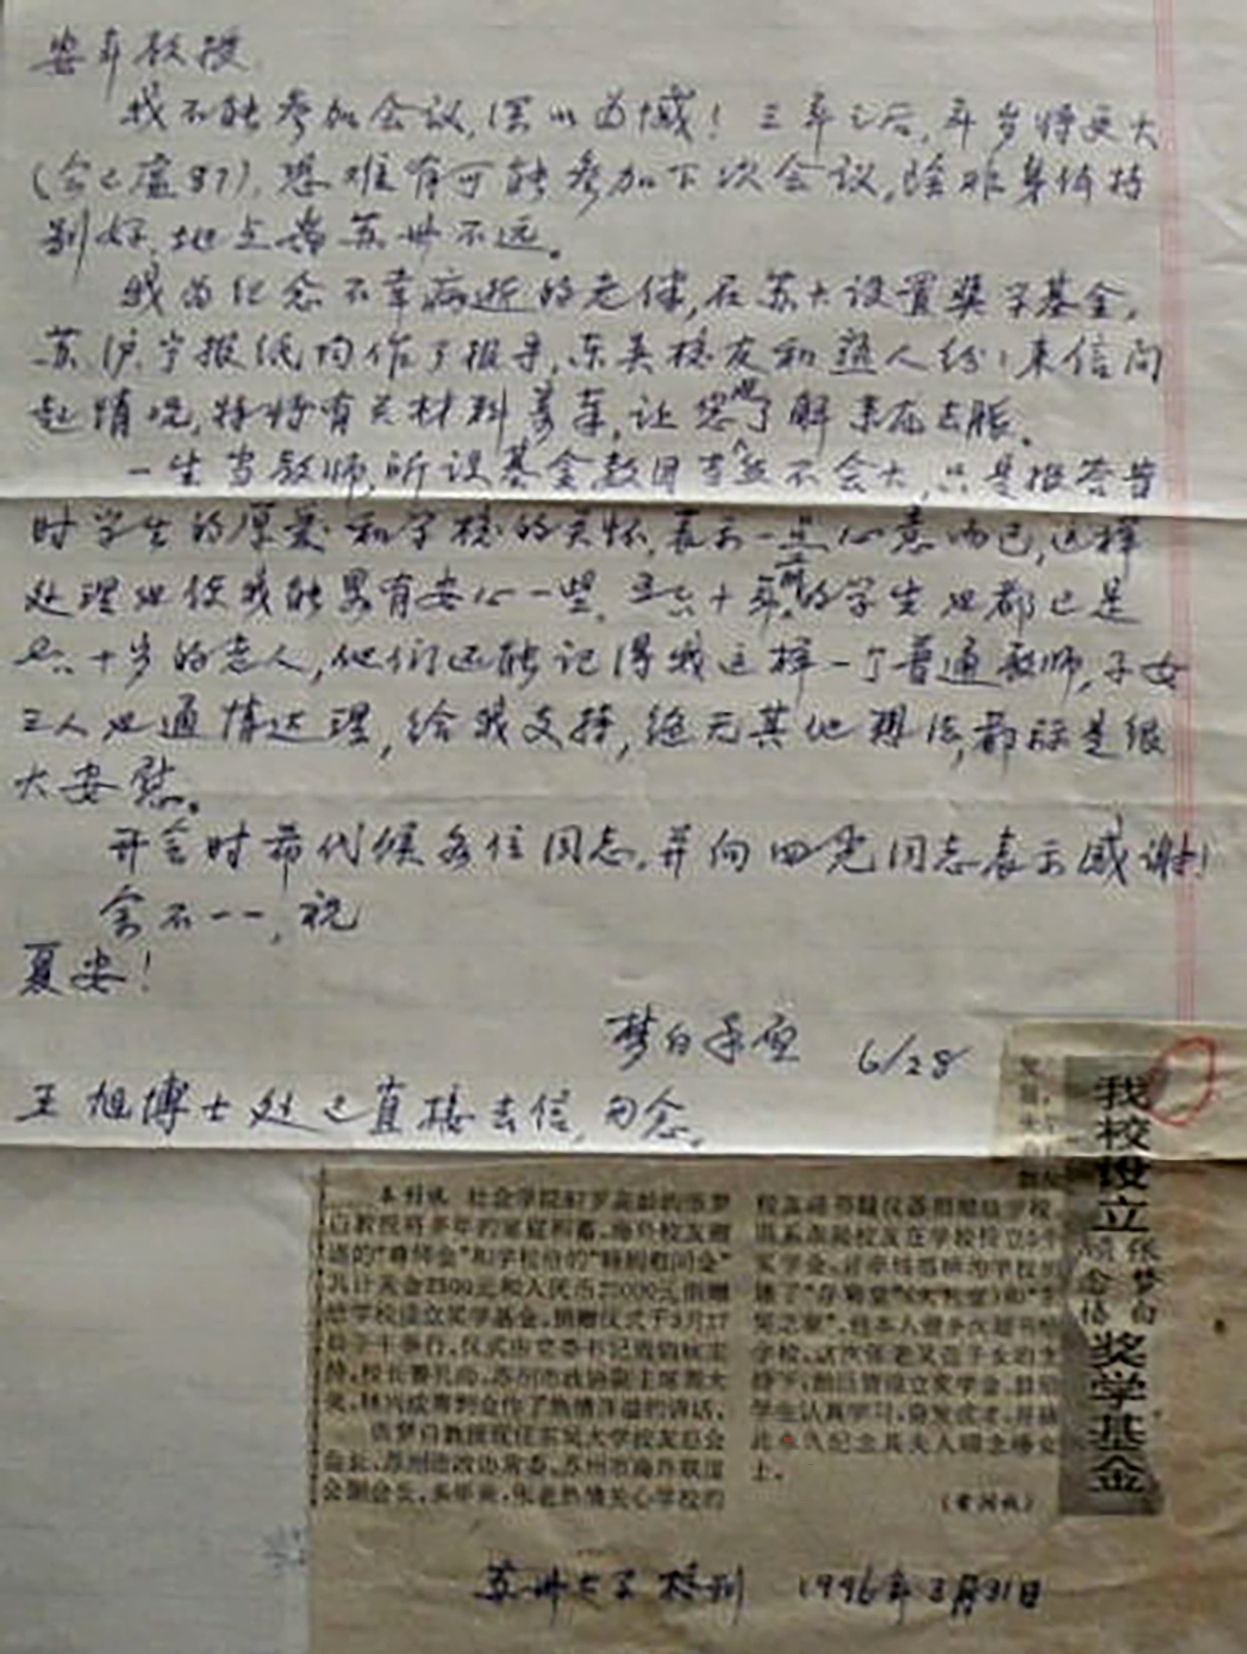 安年教授
我不能参加会议,深以为憾！三年之后,年岁将更大
(今已虚87),恐难有可能参加下次会议,除非身体特
别好,地点离苏州不远。
我为纪念不幸病逝的老伴,在苏大设置奖学基金。
苏、沪、宁报纸均作了报导,东吴校友和熟人纷纷来信问
起情况,特将有关材料寄奉,让您也了解来龙去脉。
一生当教师,所设基金数目当然不会大,只是报答昔
时学生的厚爱和学校的关怀,表示一点心意而已,这样
处理也使我能略有安心一些。五六十年前的学生也都已是
七八十岁的老人,他们还能记得我这样一个普通教师,子女
三人也通情达理,给我支持,绝无其他想法,都该是很
大安慰。
开会时希代候各位同志,并向四光同志表示感谢！
余不一一,祝
夏安！
梦白手启 6/28
王旭博士处已直接去信,勿念。
我校设立
张梦白
顾念椿
奖学基金
本刊讯 社会学院87岁高龄的张梦
白教授将多年的家庭积蓄、海外校友赠
送的“尊师金”和学校给的“特别慰问金”
共计美金2500元和人民币22000元捐赠
给学校设立奖学基金。捐赠仪式于3月27
日下午举行。仪式由党委书记
持,校长 、苏州市政协副主席
到会作了热情洋溢的讲话。
张梦白教授现任东吴大学校友总会
会长、苏州市政协常委、苏州市海外联谊
会副会长。多年来,张老热情关心学校的
学校。这次张老又在子女的支
持下,
学生认真学习,奋发成才,并借
此永久纪念其夫人顾念椿女
士。
苏州大学校刊 1996年3月31日